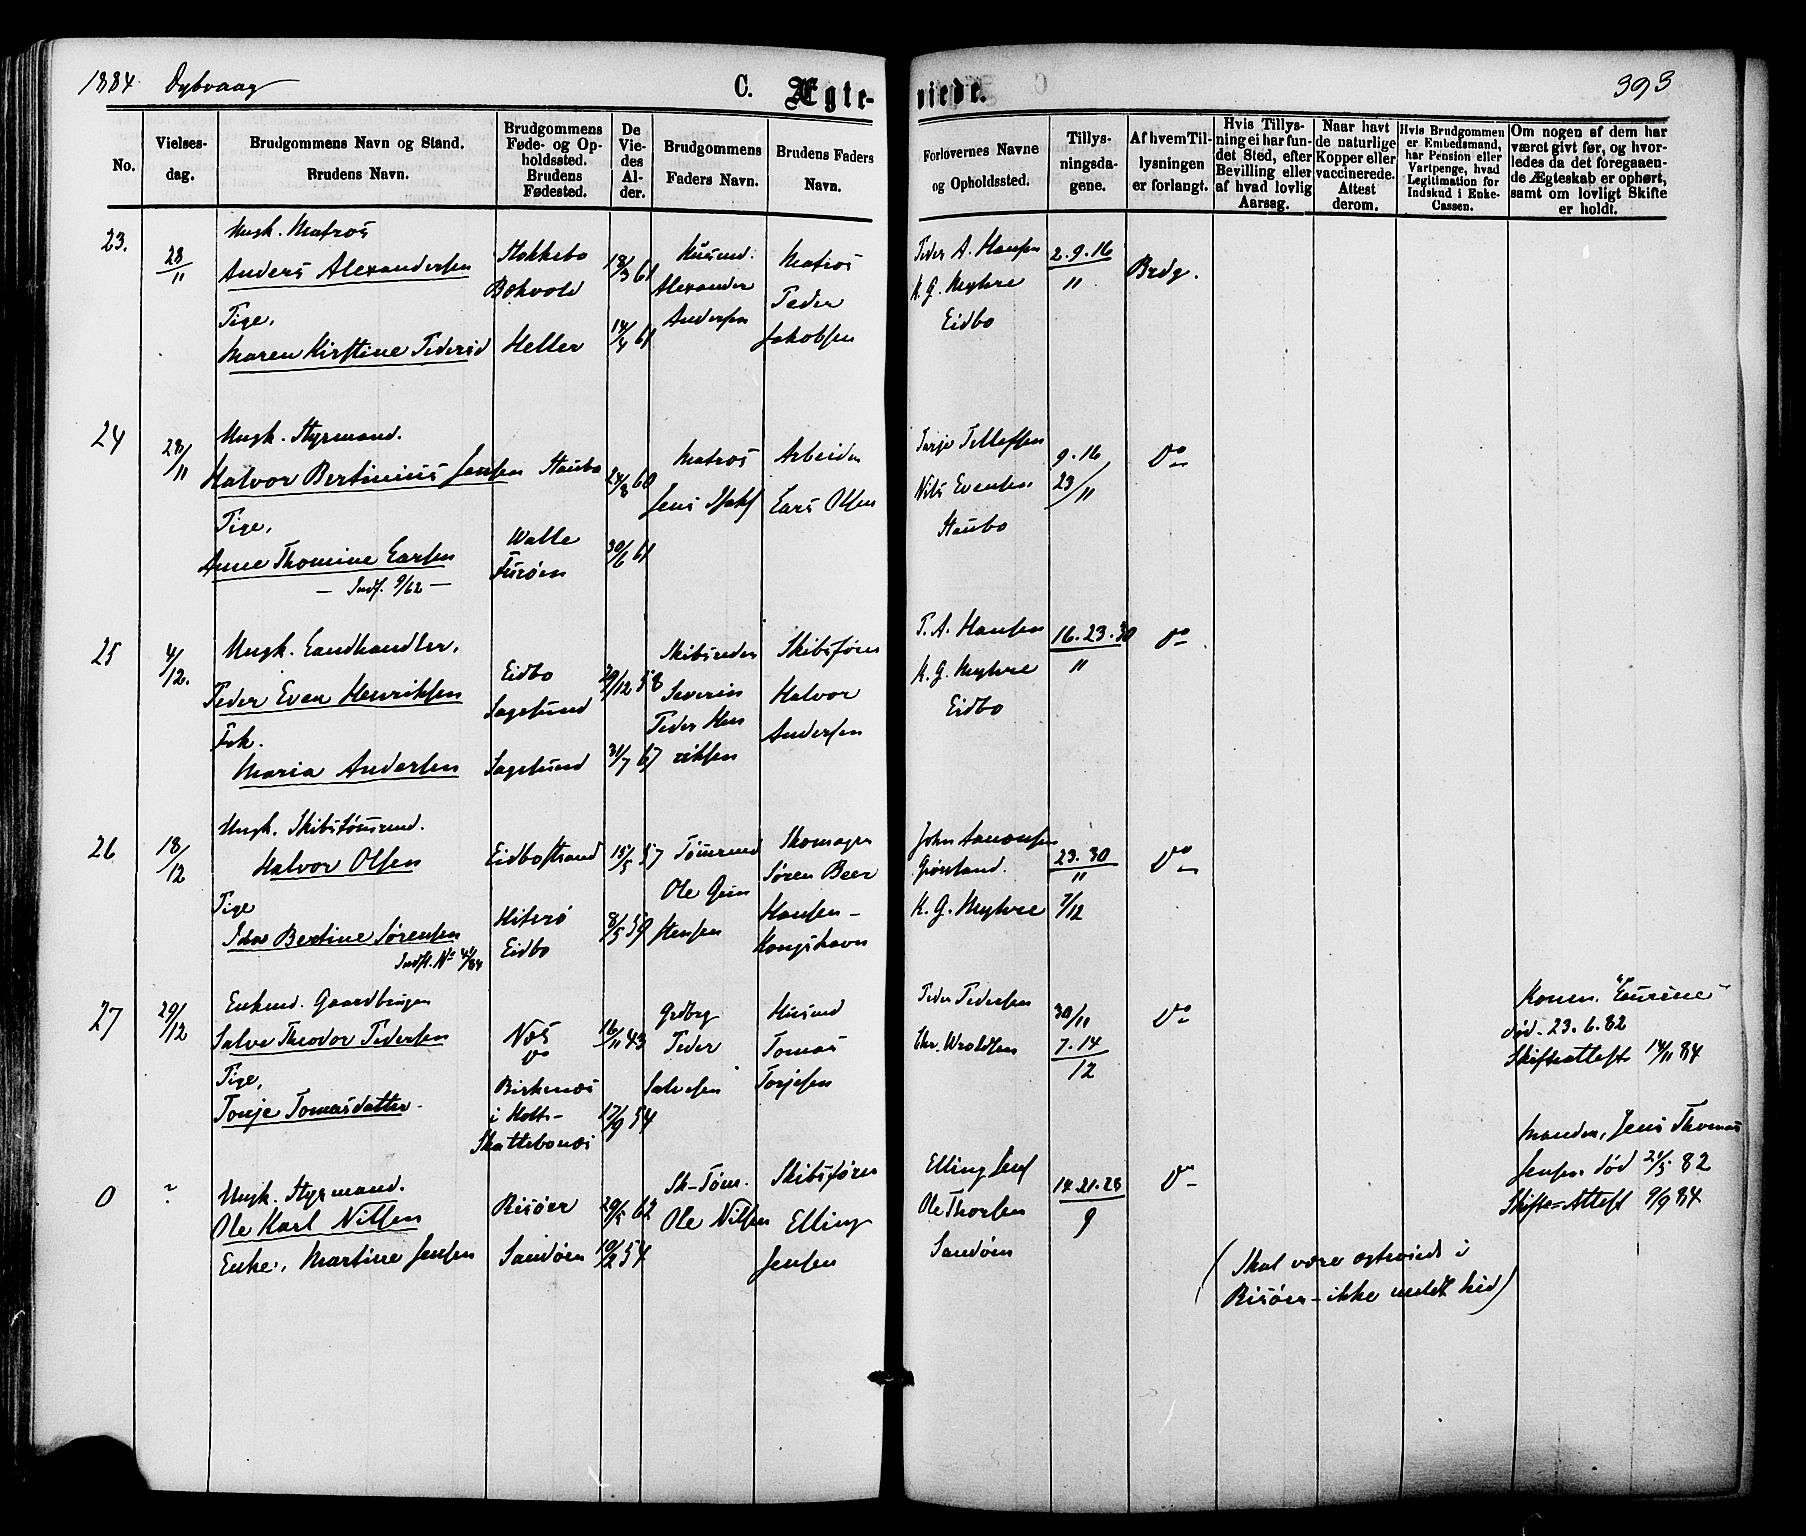 1884 Dybvaag C. Ægte-viede. 393
No.
Vielses-
dag.
Brudgommens Navn og Stand.
Brudens Navn.
Brudgommens
Føde- og Op-
holdssted.
Brudens
Fødested.
De
Vie-
des
Al-
der.
Brudgommens
Faders Navn.
Brudens Faders
Navn.
Forlovernes Navne
og Opholdssted.
Tillys-
ningsda-
gene.
Af hvem Til-
lysningen
er forlangt.
Hvis Tillys-
ning ei har fun-
det Sted, efter
Bevilling eller
af hvad lovlig
Aarsag.
Naar havt
de naturlige
Kopper eller
vaccinerede.
Attest
derom.
Hvis Brudgommen
er Embedsmand,
har Pension eller
Vartpenge, hvad
Legitimation for
Indskud i Enke-
Cassen.
Om nogen af dem har
været givt før, og hvor-
ledes da det foregaaen-
de Ægteskab er ophørt,
samt om lovligt Skifte
er holdt.
23.
28/11
Ungk. Matros
Anders Alexandersen
Pige,
Maren Kirstine Pedersd
Stokkebo
Bokvold
Heller
18/3 61
14/4 61
Husmd.
Alexander
Andersen
Matros
Peder
Jakobsen
Peder A. Hansen
K. G. Myhre
Eidbo
2. 9. 16
11
Brdg.
24
28/11
Ungk. Styrmand.
Halvor Bertinius Jensen
Pige,
Anne Thomine Larsen
— Indf. 9/62 —
Staubo
Walle
Furøen
24/8 60
30/6 61
Matros
Jens Isaks
Arbeider
Lars Olsen
Terje Tellefsen
Nils Evensen
Staubo
9. 16
23/11
Do
25
4/12.
Ungk. Landhandler.
Peder Even Henriksen
Frk.
Maria Andersen
Eidbo
Sagesund
Sagesund
29/12 58
31/7 67
Skibsreder
Severin
Peder Hen
riksen
Skibsfører
Halvor
Andersen
P. A. Hansen
K. G. Myhre
Eidbo
16. 23. 30
11
Do
26
18/12
Ungk. Skibstømrmd.
Halvor Olsen
Pige
Ida Bertine Sørensen
Eidbostrand
Hiterø
Eidbo
15/5 57
8/5 59
Tømrmd
Ole Gun
stensen
Skomager
Søren Beer
Hansen –
Kongshavn
John Aanonsen
K. G. Myhre
23. 30
11
7/12
Do
27
29/12
Enkemd. Gaardbruger
Salve Theodor Pedersen
Pige,
Tonje Tomasdatter
Næs
Do
Birkenæs
i Holt –
16/11 43
17/9 54
Grdbrg
Peder
Salvesen
Husmd
Tomas
Torjesen
Peder Pedersen
Chr. Wroldsen
30/11
7. 14
12
Do
Konen "Laurine"
død. 23. 6. 82
Skifteattest 14/11 84
0
?
Ungk. Styrmand.
Ole Karl Nilsen
Enke, Martine Jensen
Risøer
Sandøen
29/5 62
10/2 54
Sk-Tøm.
Ole Nilsen
Skibsfører
Elling
Jensen
Elling Jens
Ole Thorsen
Sandøen
14. 21. 28
9
Do
(Skal være ægteviede i
Risøer – ikke meldt hid)
Manden, Jens Thomas
Jensen død 21/5 82
Skifte-Attest 9/9 84